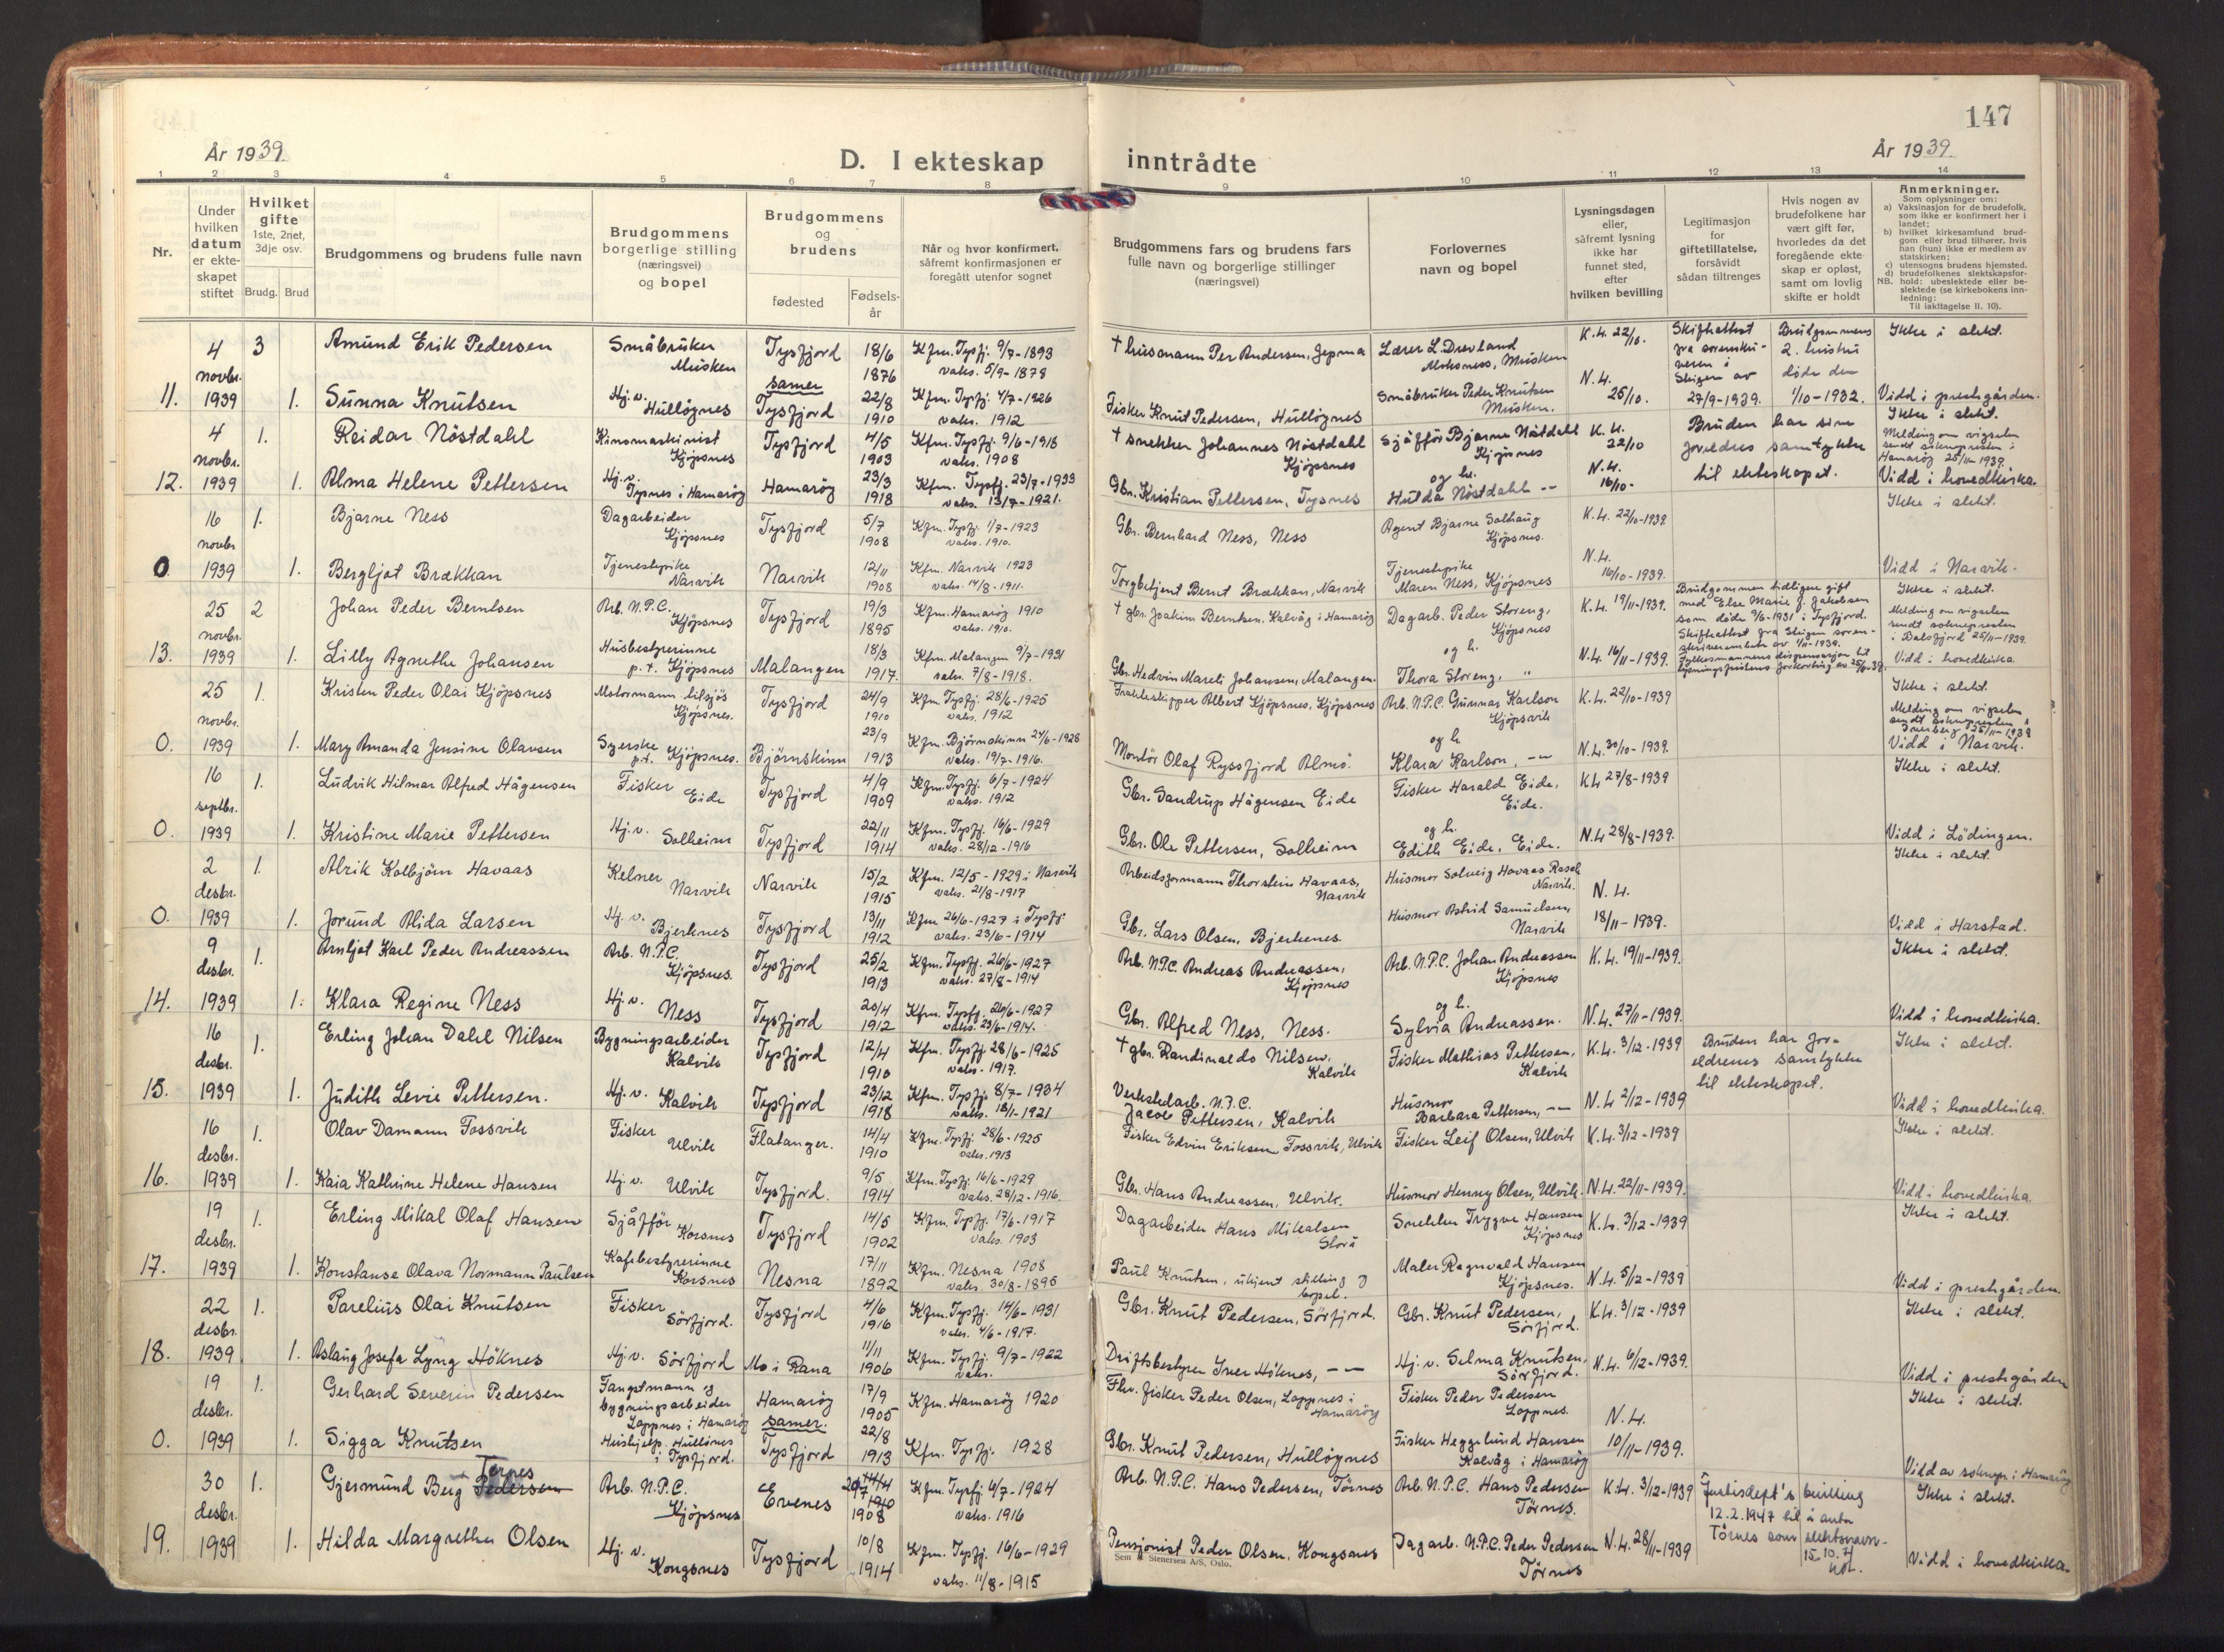 147
År 1939.
D. I ekteskap inntrådte
År 1939.
1 2 3 4 5 6 7 8 9 10 11 12 13 14
Nr.
Under hvilken datum er ekteskapet stiftet
Hvilket gifte
1ste, 2net, 3dje osv.
Brudg. Brud
Brudgommens og brudens fulle navn
Brudgommens borgerlige stilling (næringsvei) og bopel
Brudgommens og brudens
fødested
Fødsels-år
Når og hvor konfirmert, såfremt konfirmasjonen er foregått utenfor sognet
Brudgommens fars og brudens fars fulle navn og borgerlige stillinger (næringsvei)
Forlovernes navn og bopel
Lysningsdagen eller, såfremt lysning ikke har funnet sted, efter hvilken bevilling
Legitimasjon for giftetillatelse, forsåvidt sådan tiltrenges
Hvis nogen av brudefolkene har vært gift før, hvorledes da det foregående ekteskap er opløst, samt om lovlig skifte er holdt
Anmerkninger.
Som oplysninger om:
a) Vaksinasjon for de brudefolk, som ikke er konfirmert her i landet;
b) hvilket kirkesamfund brudgom eller brud tilhører, hvis han (hun) ikke er medlem av statskirken;
c) utensogns brudens hjemsted.
d) brudefolkenes slektskapsforhold: ubeslektede eller beslektede (se kirkebokens innledning:
NB. Til iakttagelse II. 10).
4 novbr. 3 Amund Erik Pedersen Småbruker Musken Tysfjord 18/6 1876 Kfm. Tysfj. 9/7-1893 vaks. 5/9-1878 † husmann Per Andersen, Jepma Lærer L. Drevland Moksness, Musken K.L. 22/10. Skifteattest fra sorenskriveren i Steigen av 27/9-1939. Brudgommens 2. hustru døde den 1/10-1932. Ikke i slekt.
samer
11. 1939 1. Sunna Knutsen Hj. v. Hulløgnes Tysfjord 22/8 1910 Kfm. Tysfj. 4/7-1926 vaks. 1912 Fisker Knut Pedersen, Hulløgnes Småbruker Peder Knutsen Musken. N.L. 25/10. Vidd i prestegården.
4 novbr. 1. Reidar Nöstdahl Kinomaskinist Kjöpsnes Tysfjord 4/5 1903 Kfm. Tysfj. 9/6-1918 vaks. 1908 † snekker Johannes Nöstdahl Kjöpsnes Sjåfför Bjarne Nöstdahl Kjöpsnes K.L. 22/10 Bruden har sine foreldres samtykke til ekteskapet. Ikke i slekt. Melding om vigselen sendt soknepresten i Hamarøy 25/11-1939.
12. 1939 1. Alma Helene Pettersen Hj. v. Tysnes i Hamaröy Hamaröy 23/3 1918 Kfm. Tysfj. 23/7-1933 vaks. 13/7-1921. Gbr. Kristian Pettersen, Tysnes og h. Hulda Nöstdahl -- N.L. 16/10- Vidd i hovedkirka.
16 novbr 1. Bjarne Ness Dagarbeider Kjöpsnes Tysfjord 5/7 1908 Kfm. Tysfj. 1/7-1923 vaks. 1910. Gbr. Bernhard Ness, Ness Agent Bjarne Solhaug Kjöpsnes. K.L. 22/10-1939. Ikke i slekt.
0. 1939 1. Bergljot Brækkan Tjenestepike Narvik Narvik 12/11 1908 Kfm. Narvik 1923 vaks. 14/8-1911. Torgbetjent Bernt Brækkan, Narvik Tjenestepike Maren Ness, Kjöpsnes N.L. 16/10-1939. Vidd i Narvik.
25 novbr. 2 Johan Peder Berntsen Arb. N.P.C. Kjöpsnes Tysfjord 19/3 1895 Kfm. Hamaröy 1910 vaks. 1910. † gbr. Joakim Berntsen, Kalvåg i Hamaröy Dagarb. Peder Storeng, Kjöpsnes K.L. 19/11-1939. Brudgommen tidligere gift med Else Marie J. Jakobsen som døde 9/6-1931 i Tysfjord. Skifteattest fra Steigen sorenskriverembete av 1/11-1939. Fylkesmannens dispensasjon til lysningsfristens forkorting av Ikke i slekt. Melding om vigselen sendt soknepresten i Balsfjord 25/11-1939.
13. 1939 1. Lilly Agnethe Johansen Husbestyrerinne p.t. Kjöpsnes Malangen 18/3 1917. Kfm. Malangen 9/7-1931 vaks. 7/8-1918. Gbr. Hedvin Mareti Johansen, Malangen. og h. Thora Storeng, " N.L. 16/11-1939. Vidd i hovedkirka.
25 novbr. 1. Kristen Peder Olai Kjöpsnes Motormann tilsjös Kjöpsnes. Tysfjord 24/9 1910 Kfm. Tysfj. 28/6-1925 vaks. 1912 Frakteskipper Albert Kjöpsnes, Kjöpsnes Arb. N.P.C. Gunnar Karlson Kjöpsvik K.L. 22/10-1939 Ikke i slekt. Melding om vigselen sendt soknepresten i 25/11-1939
0. 1939 1. Mary Amanda Jensine Olavsen Syerske p.t. Kjöpsnes. Björnskinn 23/9 1913 Kfm. Björnskinn 24/6-1928 vaks. 19/7-1916. Montör Olaf Ryssfjord Almö. og h. Klara Karlson, -- N.L. 30/10-1939. Vidd i Narvik.
16 septbr. 1. Ludvik Hilmar Alfred Hågensen Fisker Eide Tysfjord 4/9 1909 Kfm. Tysfj. 6/7-1924 vaks. 1912 Gbr. Sandrup Hågensen Eide Fisker Harald Eide, Eide. K.L. 27/8-1939 Ikke i slekt.
0. 1939 1. Kristine Marie Pettersen Hj. v. Solheim Tysfjord 22/11 1914 Kfm. Tysfj. 16/6-1929 vaks. 28/12-1916 Gbr. Ole Pettersen, Solheim og h. Edith Eide, Eide. N.L. 28/8-1939. Vidd i Lödingen.
2 desbr. 1. Alrik Kolbjörn Havaas Kelner Narvik Narvik 15/2 1915 Kfm. 12/5-1929 i Narvik vaks. 21/8-1917 Arbeidsformann Thorstein Havaas, Narvik Husmor Solveig Havaas Rasch Narvik. N.L. Ikke i slekt.
0. 1939 1. Jorund Alida Larsen Hj. v. Bjerknes Tysfjord 13/11 1912 Kfm 26/6-1927 i Tysfj. vaks. 23/6-1914 Gbr. Lars Olsen, Bjerkenes Husmor Astrid Samuelsen, Narvik 18/11-1939. Vidd i Harstad.
9 desbr. 1. Arnljot Karl Peder Andreassen Arb. N.P.C. Kjöpsnes. Tysfjord 25/2 1913 Kfm. Tysfj. 26/6-1927 vaks. 27/8-1914 Arb. N.P.C. Andreas Andreassen, Kjöpsnes Arb. N.P.C. Johan Andreassen Kjöpsnes K.L. 19/11-1939. Ikke i slekt.
14. 1939 1. Klara Regine Ness Hj. v. Ness Tysfjord 20/4 1912 Kfm. Tysfj. 26/6-1927 vaks. 23/6-1914. Gbr. Alfred Ness, Ness. og h. Sylvia Andreassen. N.L. 27/11-1939. Vidd i hovedkirka.
16 desbr. 1. Erling Johan Dahl Nilsen Bygningsarbeider Kalvik Tysfjord 12/4 1910 Kfm. Tysfj. 28/6-1925 vaks. 1917. † gbr. Randinaldo Nilsen, Kalvik Fisker Mathias Pettersen, Kalvik K.L. 3/12-1939 Bruden har foreldrenes samtykke til ekteskapet. Ikke i slekt.
15. 1939 1. Judith Levie Pettersen. Hj. v. Kalvik Tysfjord 23/12 1918 Kfm. Tysfj. 8/7-1934 vaks. 18/1-1921 Verkstedarb. N.P.C. Jacob Pettersen, Kalvik Husmor Barbara Pettersen, -- N.L. 2/12-1939 Vidd i hovedkirka.
16 desbr. 1. Olav Damann Fossvik Fisker Ulvik Flatanger. 14/4 1910 Kfm. Tysfj. 28/6-1925 vaks. 1913 Fisker Edvin Eriksen Fossvik, Ulvik Fisker Leif Olsen, Ulvik K.L. 3/12-1939 Ikke i slekt.
16. 1939 1. Kaia Kathrine Helene Hansen Hj. v. Ulvik Tysfjord. 9/5 1914 Kfm. Tysfj. 16/6-1929 vaks. 28/12-1916. Gbr. Hans Andreassen, Ulvik. Husmor Henny Olsen, Ulvik. N.L. 22/11-1939. Vidd i hovedkirka.
19 desbr. 1. Erling Mikal Olaf Hansen Sjåfför Korsnes Tysfjord 14/5 1902 Kfm. Tysfj. 17/6-1917 vaks. 1903 Dagarbeider Hans Mikalsen Storå Snekker Trygve Hansen Kjöpsnes K.L. 3/12-1939 Ikke i slekt.
17. 1939 1. Konstanse Olava Normann Paulsen Kafebestyrerinne Korsnes Nesna 17/11 1892 Kfm. Nesna 1908 vaks. 30/8-1895 Paul Knutsen, ukjent stilling og bopel. Maler Ragnvald Hansen Kjöpsnes. N.L. 5/12-1939 Vidd i prestegården
22 desbr. 1. Parelius Olai Knutsen Fisker Sörfjord. Tysfjord 4/6 1916 Kfm. Tysfj. 14/6-1931 vaks. 4/6-1917. Gbr. Knut Pedersen, Sörfjord. Gbr. Knut Pedersen, Sörfjord. K.L. 3/12-1939 Ikke i slekt.
18. 1939 1. Aslaug Josefa Lyng Höknes Hj. v. Sörfjord Mo i Rana 11/11 1906 Kfm. Tysfj. 9/7-1922 vaks. Driftsbestyrer Iver Höknes, -- Hj. v. Selma Knutsen, Sörfjord. N.L. 6/12-1939. Vidd i prestegården
19 desbr. 1. Gerhard Severin Pedersen Fangstmann og bygningsarbeider Lappnes i Hamaröy Hamaröy 17/9 1905 Kfm. Hamaröy 1920 Fhv. fisker Peder Olsen, Lappnes i Hamaröy Fisker Peder Pedersen Lappnes. N.L. Ikke i slekt.
samer.
0. 1939 1. Sigga Knutsen Hushjelp. Hullönes i Tysfjord. Tysfjord 22/8 1913 Kfm. Tysfj. 1928 Gbr. Knut Pedersen, Hulløgnes Fisker Heggelund Hansen Kalvåg i Hamaröy 10/11-1939. Vidd av sokнepr. i Hamaröy
30 desbr. 1. Gjermund Berg Pedersen Törnes Arb. N.P.C. Kjöpsnes Evenes 1908 Kfm. Tysfj. 6/7-1924 vaks. 1916 Arb. N.P.C. Hans Pedersen, Törnes Arb. N.P.C. Hans Pedersen Törnes. K.L. 3/12-1939 Justisdept's bevilling 12.2.1947 til å anta Törnes som slektsnavn. Ikke i slekt.
19. 1939 1. Hilda Margrethe Olsen Hj. v. Kongsnes Tysfjord 10/8 1914 Kfm. Tysfj. 16/6-1929 vaks. 11/8-1915 Pensjonist Peder Olsen, Kongsnes Dagarb. N.P.C. Peder Pedersen Törnes N.L. 28/11-1939 Vidd i hovedkirka.
Sem & Stenersen A/S, Oslo.